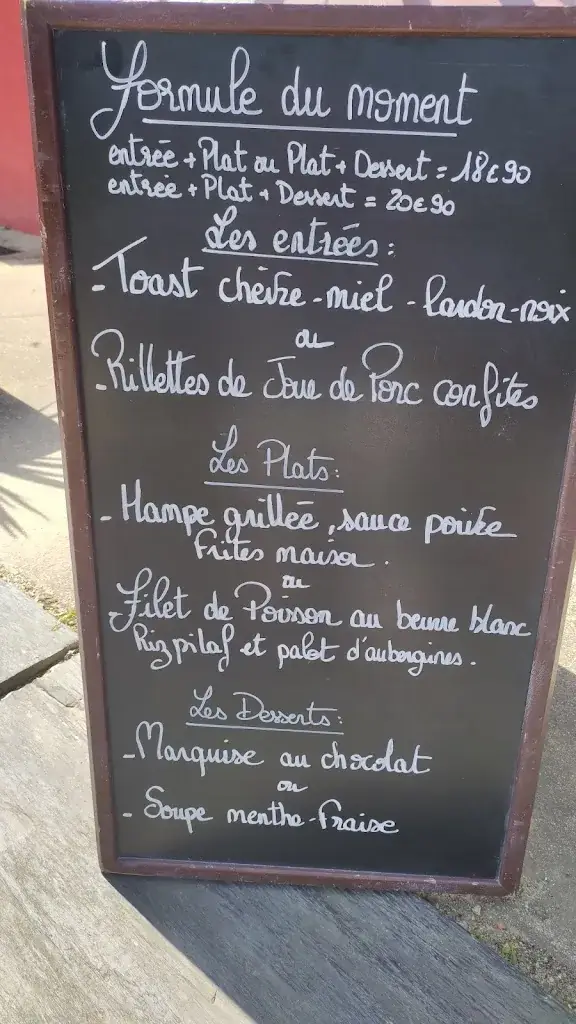 Formule du moment
entrée + Plat ou Plat + Dessert = 18€90
entrée + Plat + Dessert = 20€90
Les entrées :
- Toast chèvre - miel - lardon - noix
ou
- Rillettes de Joue de Porc confites
Les Plats :
- Hampe grillée, sauce poivre
Frites maison .
ou
- Filet de Poisson au beurre blanc
Riz pilaf et palet d'aubergines .
Les Desserts :
- Marquise au chocolat
ou
- Soupe menthe - Fraise